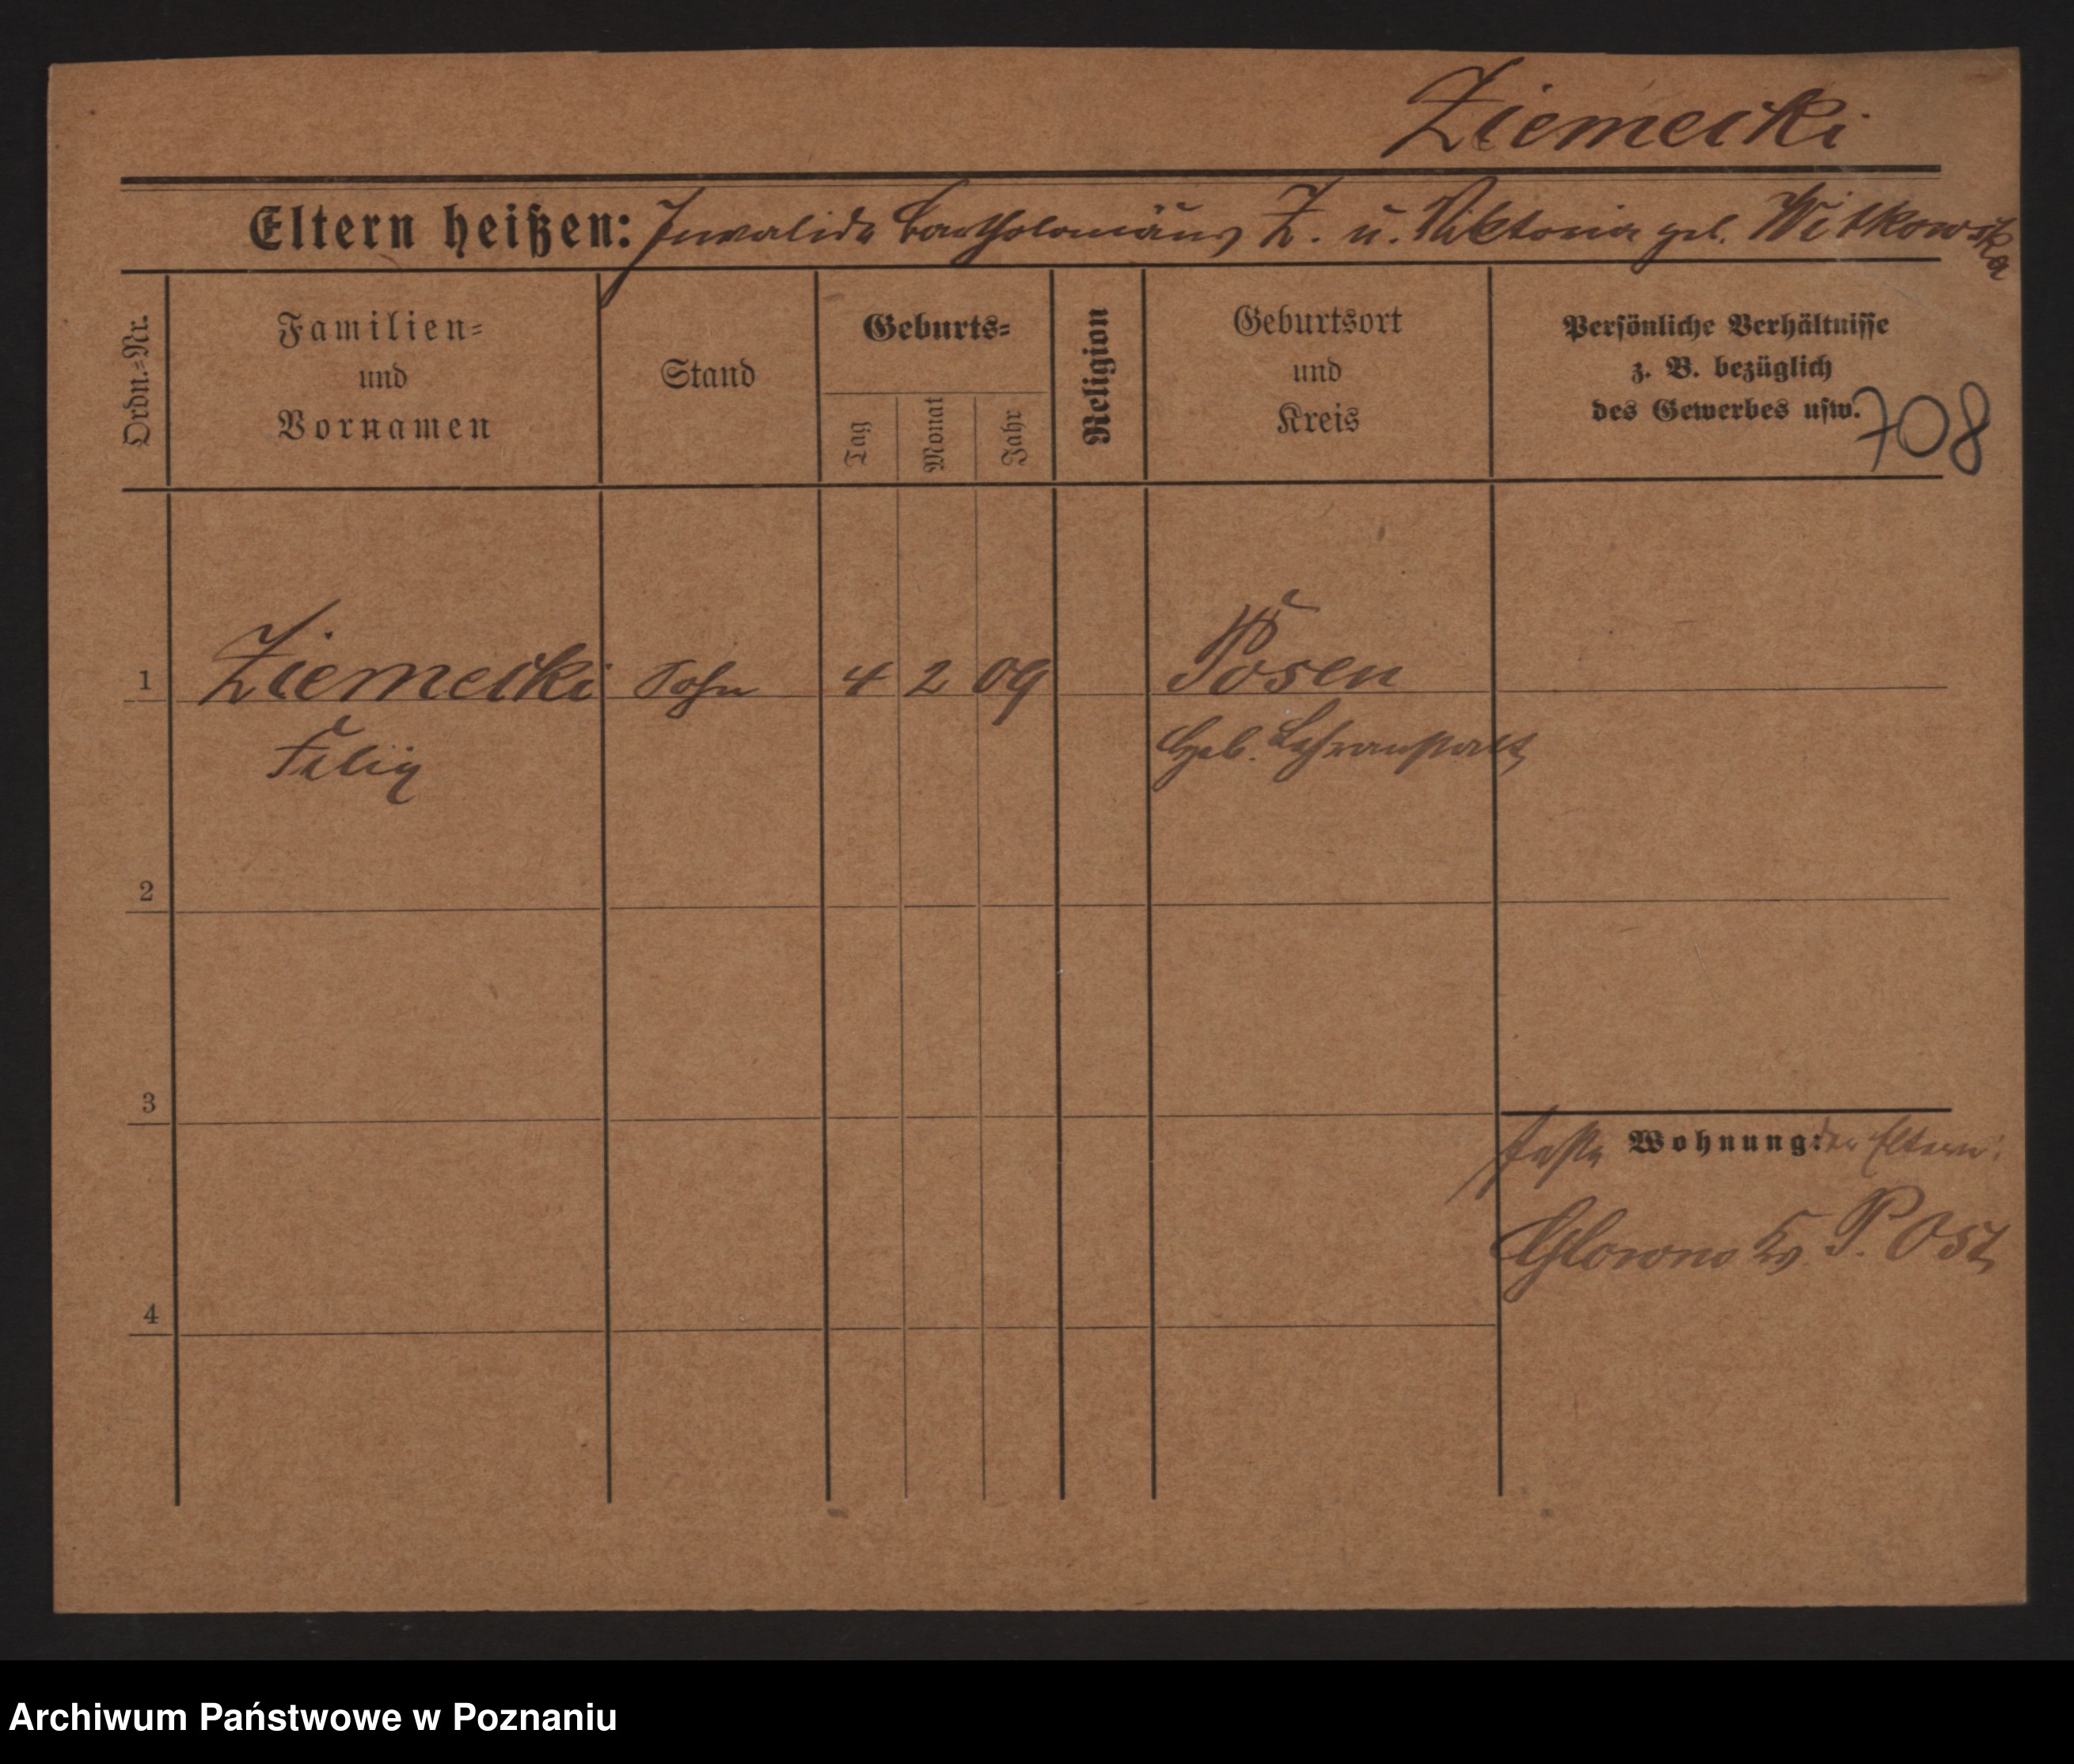 Ziemecki
Eltern heißen: Invalide Bartholomäus Z. u. Viktoria geb. Witkowska
Ordn.=Nr.
Familien=
und
Vornamen
Stand
Geburts=
Tag
Monat
Jahr
Religion
Geburtsort
und
Kreis
Persönliche Verhältnisse
z. B. bezüglich
des Gewerbes usw.
708
1 Ziemecki Sohn 4 2 09 Posen
Felix Geb. Lehranstalt
2
3
feste Wohnung: der Eltern:
Glowno Kr. P. Ost
4
Archiwum Państwowe w Poznaniu